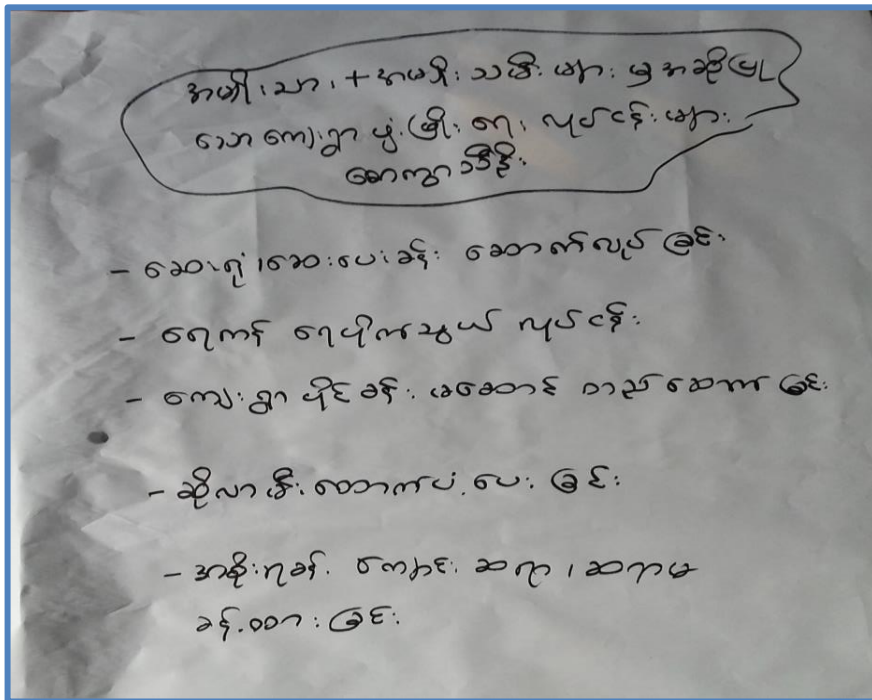 အမျိုးသား + အမျိုးသမီးများမှ အဆိုပြု
သော ကျေးရွာဖွံ့ဖြိုးရေး လုပ်ငန်းများ
ဆောကွာခီဒိုး
- ဆေးရုံ၊ ဆေးပေးခန်း ဆောက်လုပ်ခြင်း
- ရေကန် ရေပိုက်သွယ် လုပ်ငန်း
- ကျေးရွာပိုင်ခန်းမဆောင် တည်ဆောက်ခြင်း
- ဆိုလာမီး ထောက်ပံ့ပေးခြင်း
- အစိုးရခန့် ကျောင်းဆရာ၊ ဆရာမ
ခန့်ထားခြင်း